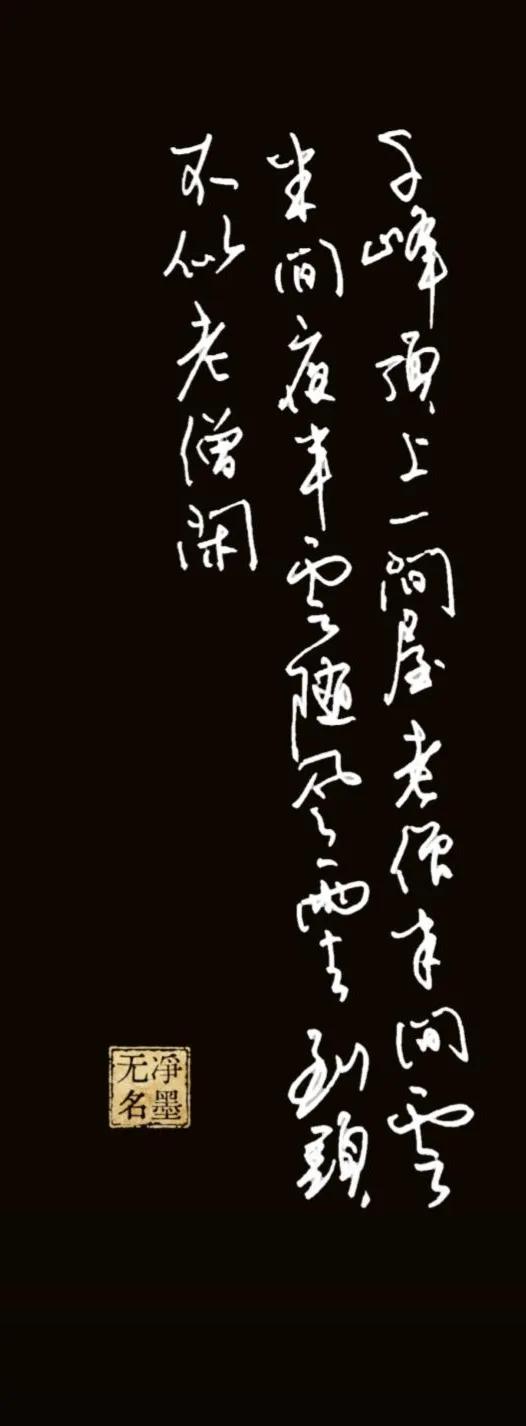 千峰頂上一間屋老僧半間雲
半間夜半雲隨風雨去到頭
不似老僧闲
净墨
无名